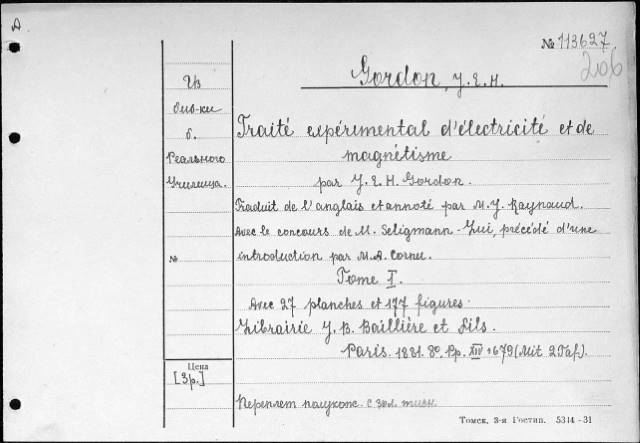 А
№ 113627
206
Gordon, J. E. H.
Из
биб-ки
б.
Реального
Училища.
№
Цена
[3р.]
Traité expérimental d'électricité et de
magnétisme
par J. E. H. Gordon.
Traduit de l'anglais et annoté par M. J. Raynaud.
Avec le concours de M. Seligmann-Lui, précédé d'une
introduction par M. A. Cornu.
Tome I.
Avec 27 planches et 177 figures.
Librairie J. B. Baillière et fils.
Paris. 1881. 8º. Pp. XIV + 679 (Mit 2 Taf).
Переплет полукож. с зол. тисн.
Томск, 3-я Гостип. 5314-31